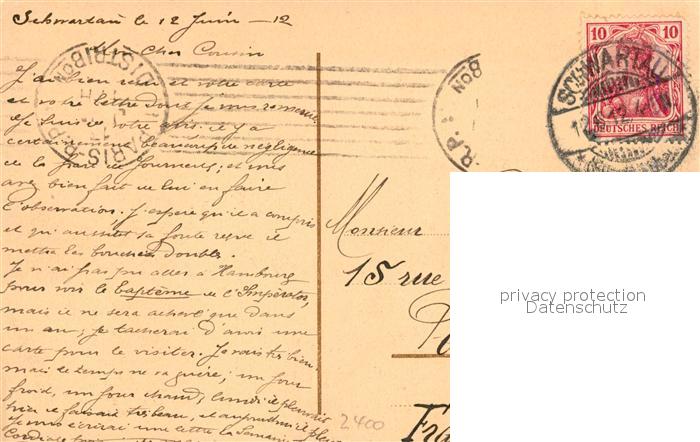 Schwartau le 12 Juin – 12
Mon Cher Cousin
J'ai bien reçu et votre carte
et votre lettre dont je vous remercie
Je suis de votre avis, il y a
certainement beaucoup de négligence
de la part de fournerets; et vous
avez bien fait de lui en faire
l'observation. J'espère qu'il a compris
et qu'aussitôt sa foute reçue il
mettra les bouchées doubles.
Je n'ai pas pu aller à Hambourg
pour voir le baptême de l'Impérator,
mais il ne sera achevé que dans
un an; je tâcherai d'avoir une
carte pour le visiter. Je vais très bien
mais le temps ne va guère; un jour
froid, un jour chaud, lundi il pleuvait
hier il faisait très beau, et aujourd'hui il pleut
Je vous écrirai une lettre la semaine
Cordiale
Monsieur
15 rue
Fra
2400
10 10
DEUTSCHES REICH
SCHWARTAU
PARIS R.P.
DISTRIBON
R.P.
BON
privacy protection
Datenschutz